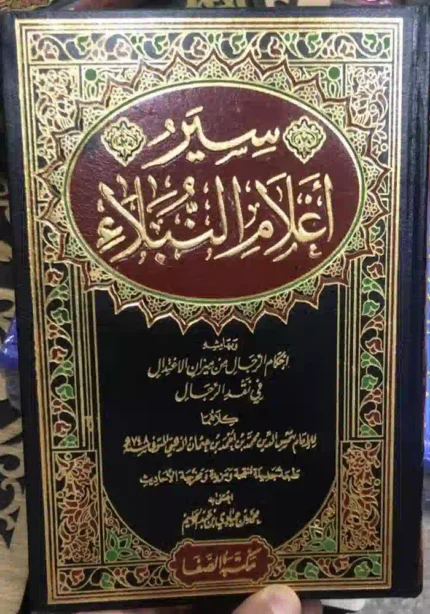 سِيَر
أَعْلَامِ النُّبَلَاءِ
وبهامشه
إحكام الرجال من ميزان الاعتدال
في نقد الرجال
كلاهما
للإمام شمس الدين محمد بن أحمد بن عثمان الذهبي المتوفى سنة ٧٤٨هـ
طبعة جديدة منقحة ومزيدة ومخرجة الأحاديث
اعتنى به
محمد بن عيادي بن عبد الحليم
مكتبة الصفا